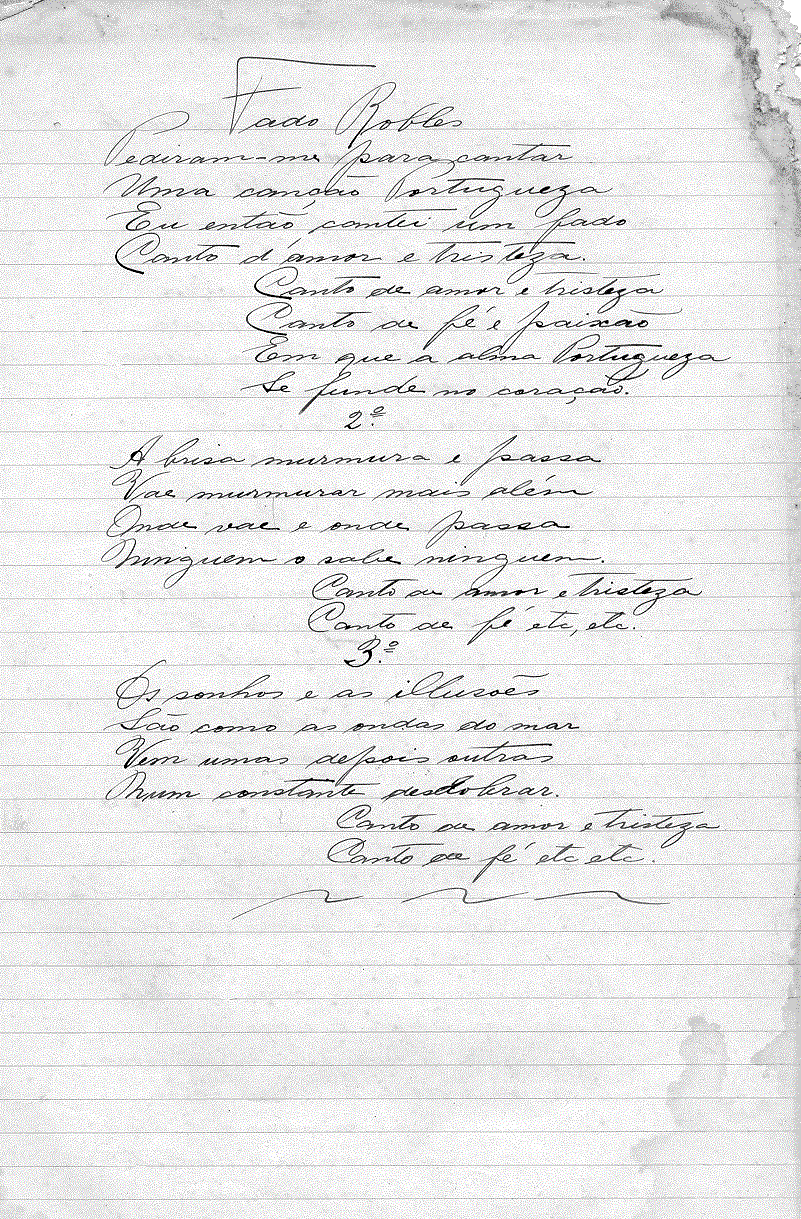 Fado Robles
Pediram-me para cantar
Uma canção Portugueza
Eu então cantei um fado
Canto d'amor e tristeza.
Canto de amor e tristeza
Canto de fé e paixão
Em que a alma Portugueza
Se funde no coração.
2º
A brisa murmura e passa
Vae murmurar mais além
Onde vae e onde passa
Ninguem o sabe ninguem.
Canto de amor e tristeza
Canto de fé etc, etc.
3º
Os sonhos e as illusoẽs
São como as ondas do mar
Vem umas depois outras
Num constante desdobrar.
Canto de amor e tristeza
Canto de fé etc etc.